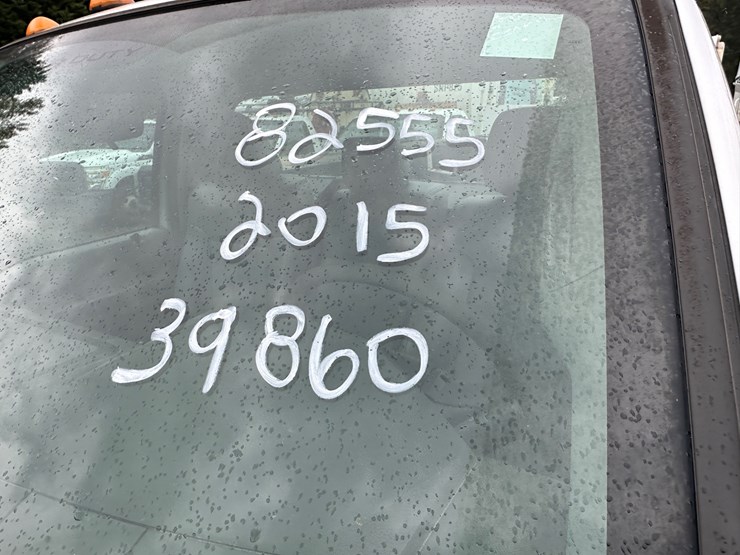 82555
2015
39860